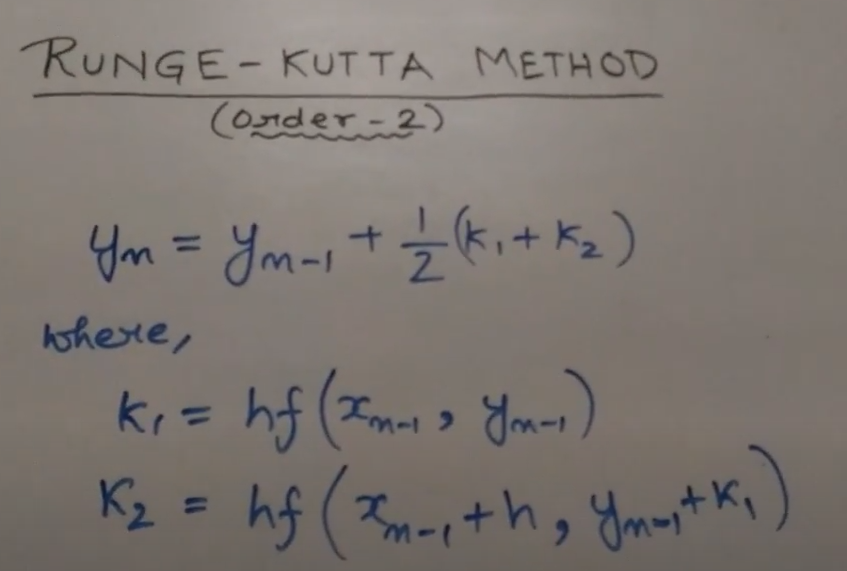 RUNGE-KUTTA METHOD
(order-2)
yₙ = yₙ₋₁ + 1/2 (k₁ + k₂)
where,
k₁ = hf(xₙ₋₁, yₙ₋₁)
K₂ = hf(xₙ₋₁+h, yₙ₋₁+K₁)